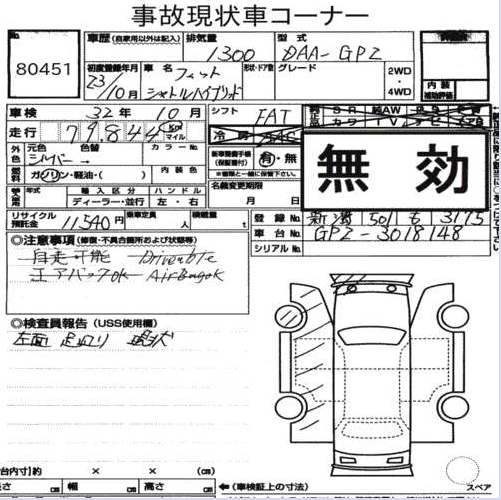 事故現状車コーナー
80451
車歴 (自家用以外は記入) 排気量 型式
1300 DAA-GP2
初度登録年月 車名 形状・ドア数 グレード
23/10月 フィット シャトルハイブリッド
2WD・4WD
内装
補助評価
車検 32年10月 シフト FAT
走行 79,844 Km マイル 冷房 AAC
外色 元色 色替 カラーNo.
シルバー →
新車整備手帳(保証書付) 有・無
燃料 ガソリン・軽油・( ) 内装色
輸入車用 年式 輸入区分 ハンドル
名義変更期限
ディーラー・並行 左・右 月 日
無効
リサイクル預託金 11540円 乗車定員 人 積載量 K
登録No. 新潟 501 も 3175
車台No. GP2-3018148
シリアルNo.
◎注意事項 (修復・不具合箇所および状態等)
自走可能 Driveable
エアバックok AirBagok
◎検査員報告 (USS使用欄)
左面 足廻り 現状
台内寸約) × × (約)cm
長さ cm 幅 cm 高さ cm ←(車検証上の寸法) スペア